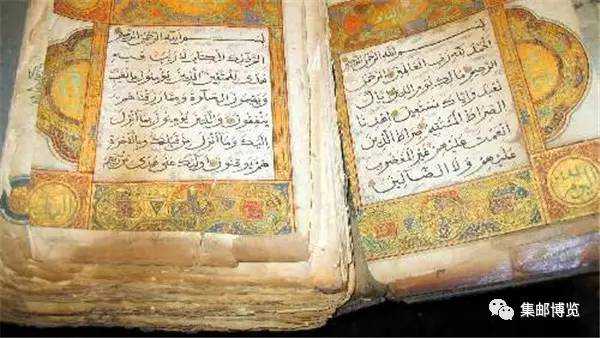 بسم الله الرحمن الرحيم
الحمد لله رب العالمين الرحمن
الرحيم مالك يوم الدين إياك
نعبد وإياك نستعين اهدنا
الصراط المستقيم صراط الذين
أنعمت عليهم غير المغضوب
عليهم ولا الضالين
بسم الله الرحمن الرحيم
الم ذلك الكتاب لا ريب فيه
هدى للمتقين الذين يؤمنون بالغيب
ويقيمون الصلوة ومما رزقناهم
ينفقون والذين يؤمنون بما أنزل
إليك وما أنزل من قبلك وبالآخرة
هم يوقنون أولئك على هدى من ربهم
集邮博览